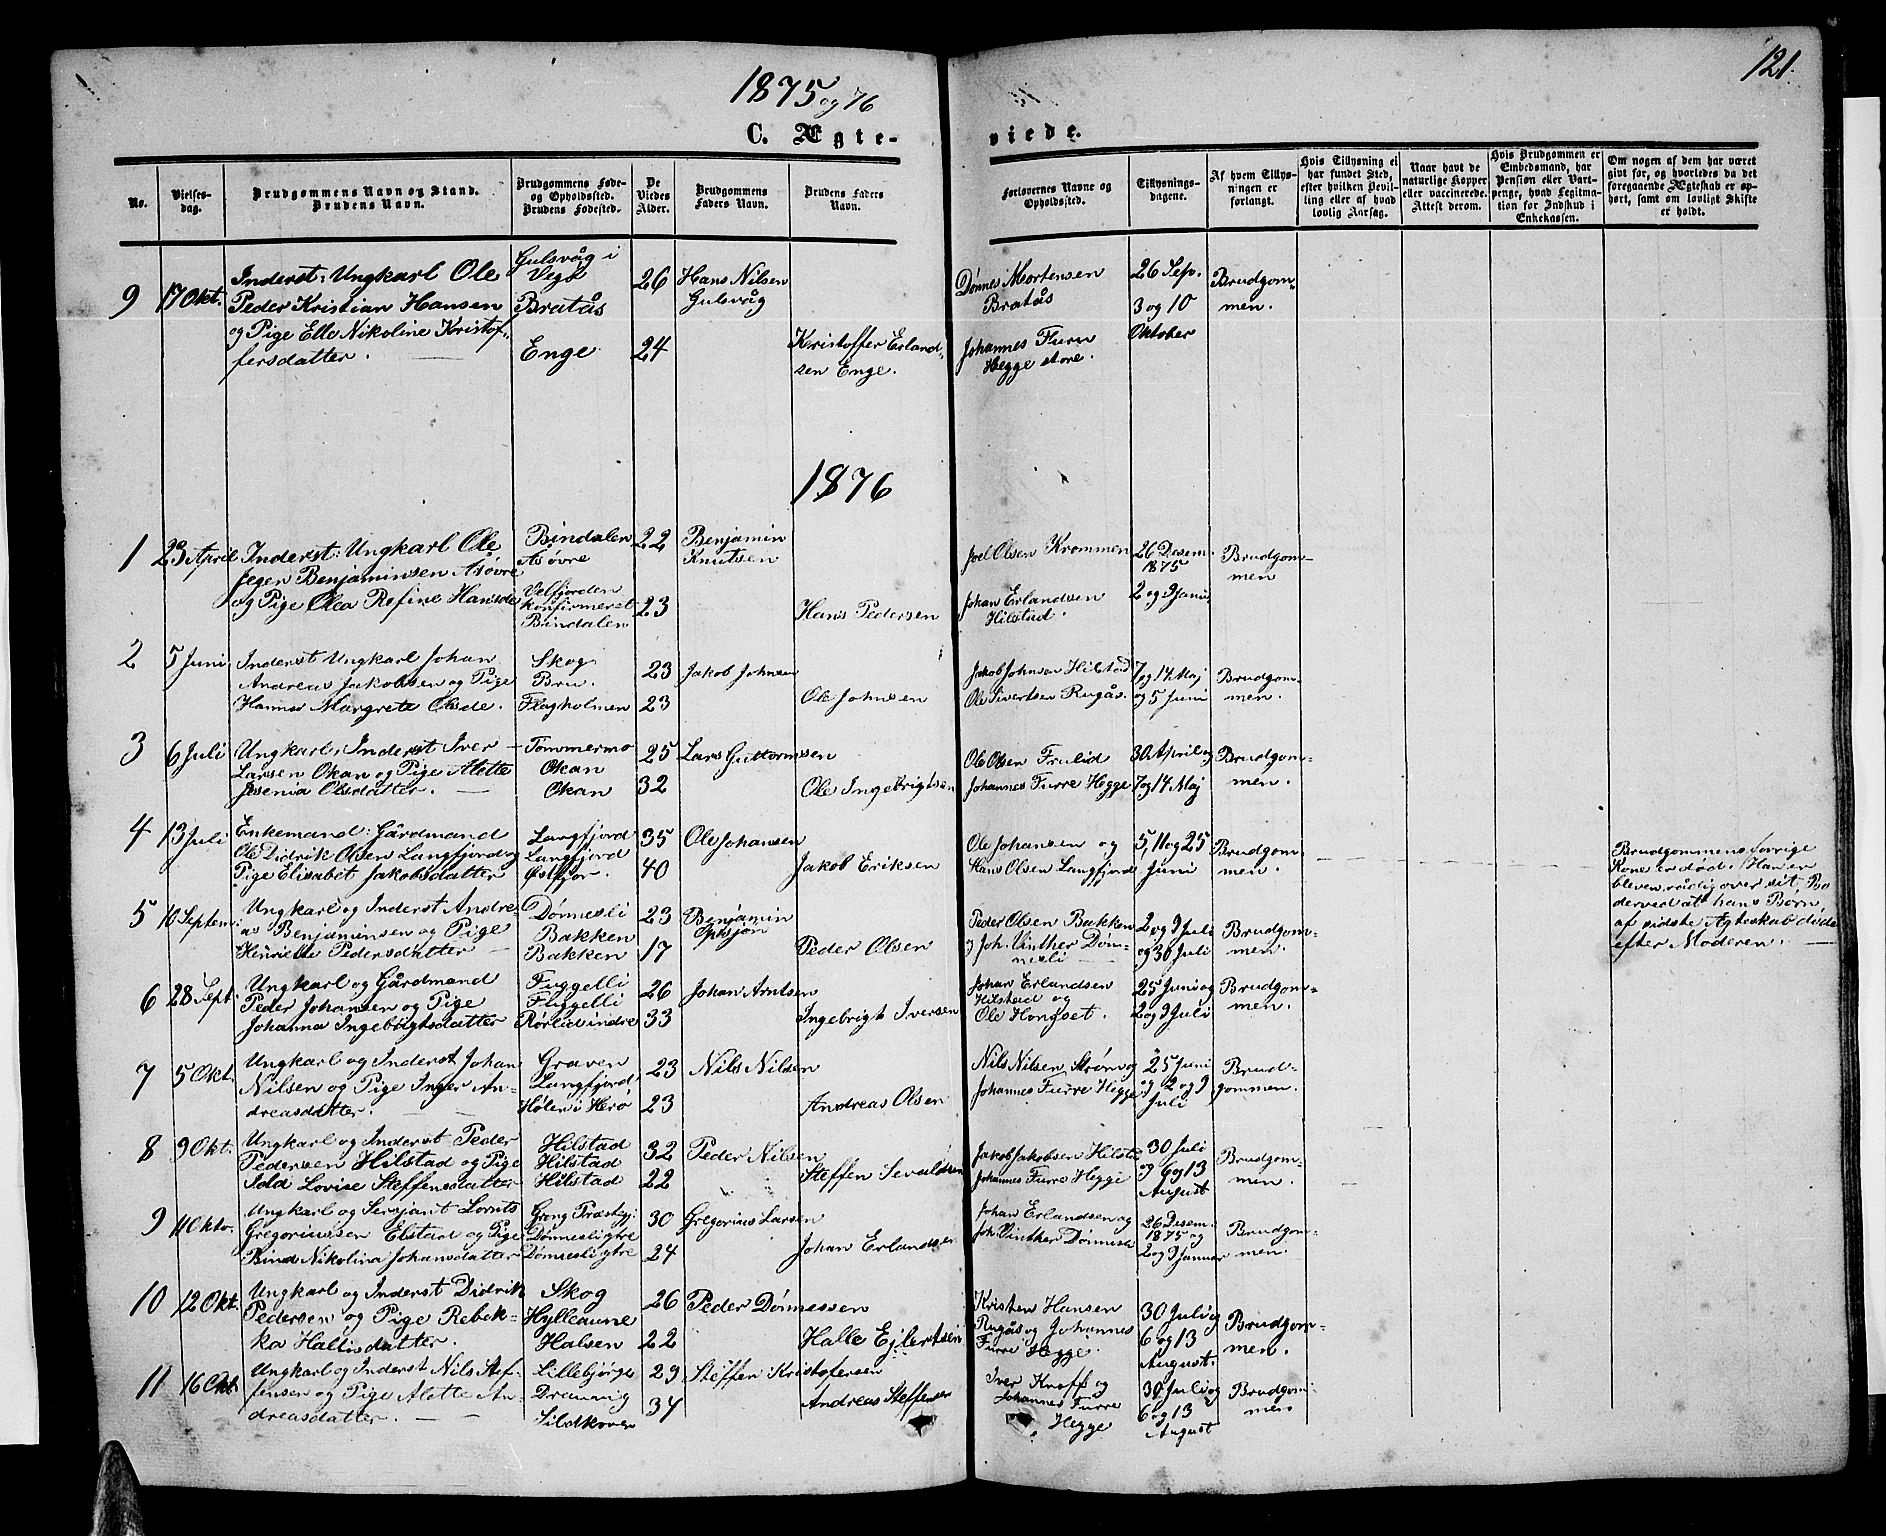 121.
1875 og 76
C. Ægte-
viede.
No.
Vielses-
dag.
Brudgommens Navn og Stand.
Brudens Navn.
Brudgommens Føde-
og Opholdssted.
Brudens Fødested.
De
Viedes
Alder.
Brudgommens
Faders Navn.
Brudens Faders
Navn.
Forlovernes Navne og
Opholdssted.
Tillysnings-
dagene.
Af hvem Tillys-
ningen er
forlangt.
Hvis Tillysning ei
har fundet Sted,
efter hvilken Bevil-
ling eller af hvad
lovlig Aarsag.
Naar havt de
naturlige Kopper
eller vaccinerede.
Attest derom.
Hvis Brudgommen er
Embedsmand, har
Pension eller Vart-
penge, hvad Legitima-
tion for Indskud i
Enkekassen.
Om nogen af dem har været
gift før, og hvorledes da det
foregaaende Ægteskab er op-
hørt, samt om lovligt Skifte
er holdt.
9
17 Okt.
Inderst: Ungkarl Ole
Peder Kristian Hansen
og Pige Elle Nikoline Kristof-
fersdatter.
Gulsvåg i
Vega
Bratås
Enge
26
24
Hans Nilsen
Gulsvåg
Kristoffer Erland-
sen Enge.
Dønnes Mortensen
Bratås
Johannes Furu
Hegge store.
26 Sep.
3 og 10
Oktober
Brudgom-
men.
1876
1
23 April
Inderst: Ungkarl Ole
Jegen Benjaminsen Asøvre
og Pige Olea Refine Hansda
Bindalen
Asøvre
Velfjorden
konfirmeret
Bindalen
22
23
Benjamin
Knutsen
Hans Pedersen
Joel Olsen Krommen
Johan Erlandsen
Hilstad.
26 Desem.
1875
2 og 9 Janu.
Brudgom-
men
2
5 Juni
Inderst Ungkarl Johan
Andreas Jakobsen og Pige
Hanna Margrete Olsda.
Skog
Bru.
Flagholmen
23
23
Jakob Johnsen
Ole Johnsen
Jakob Johnsen Hilstad
Ole Sivertsen Rugås.
7 og 14 Maj
og 5 Juni
Brudgom-
men.
3
6 Juli
Ungkarl, Inderst Iver
Larsen Okan og Pige Alette
Jesenia Olsdatter.
Tømmermo
Okan
Okan
25
32
Lars Guttormsen
Ole Ingebrigtsen
Ole Olsen Frulid
Johannes Furre Hegge
30 April og
7 og 14 Maj
Brudgom-
men.
4
13 Juli
Enkemand: Gårdmand
Ole Didrik Olsen Langfjord og
Pige Elisabet Jakobsdatter
Langfjord
Langfjord
Østfjor.
35
40
Ole Johansen
Jakob Eriksen
Ole Johansen og
Hans Olsen Langfjord
5, 11 og 25
Juni
Brudgom-
men.
Brudgommens forrige
Kone er død. Han er
bleven rådig over sit Bo
derved at hans Børn,
af sidste Ægteskab døde
efter Moderen.
5
10 Septem:
Ungkarl og Inderst Andre-
as Benjaminsen og Pige
Henriette Pedersdatter
Dønnesli
Bakken
Bakken
23
17
Benjamin
Opsjøn
Peder Olsen
Peder Olsen Bakken
og Joh. Vinther Døn-
nesli
2 og 9 Juli
og 30 Juli
Brudgom-
men.
6
28 Sept:
Ungkarl og Gårdmand
Peder Johansen og Pige
Johanna Ingebrigtsdatter
Fuggelli
Fuggelli
Rørlid indre
26
33
Johan Arntsen
Ingebrigt Iversen
Johan Erlandsen
Hilstad og
Ole Hongset.
25 Juni og
2 og 9 Juli
Brudgom-
men.
7
5 Okt.
Ungkarl og Inderst Johan
Nilsen og Pige Inger An-
dreasdatter.
Graven
Langfjord
Holen i Herø
23
23
Nils Nilsen
Andreas Olsen
Nils Nilsen Strøm og
Johannes Furre Hegge
25 Juni
og 2 og 9
Juli
Brud-
gommen.
8
9 Okt.
Ungkarl og Inderst Peder
Pedersen Hilstad og Pige
Lovise Steffensdatter
Hilstad
Hilstad
Hilstad
32
22
Peder Nilsen
Steffen Sevaldsen
Jakob Jakobsen Hilstd
Johannes Furre Hegge
30 Juli
og 6 og 13
August
Brudgom-
men.
9
11 Oktor.
Ungkarl og Serjant Lornts
Gregoriussen Elstad og Pige
Nikolina Johansdatter
Grong Præstegj:
Dønnesli ytre
Dønnesli ytre
30
24
Gregorius Larsen
Johan Erlandsen
Johan Erlandsen og
Joh. Vinther Dønnesli
26 Desem.
1875 og
2 og 9 Januar
Brudgom-
men.
10
12 Okt.
Ungkarl og Inderst Didrik
Pedersen og Pige Rebek-
ka Hallisdatter.
Skog
Hylleaune
Halsen
26
22
Peder Dønnessen
Halle Ejlertsen
Kristen Hansen
Rugås og Johannes
Furre Hegge
30 Juli og
6 og 13
August.
Brudgom-
men.
11
16 Okt
Ungkarl og Inderst Nils Stef-
fensen og Pige Alette An-
dreasdatter.
Lillebjørge
Drevning
Sildkoven
29
37
Steffen Kristofersen
Andreas Steffensen
Iver Kroff og
Johannes Furre
Hegge
30 Juli og
6 og 13
August
Brudgom-
men